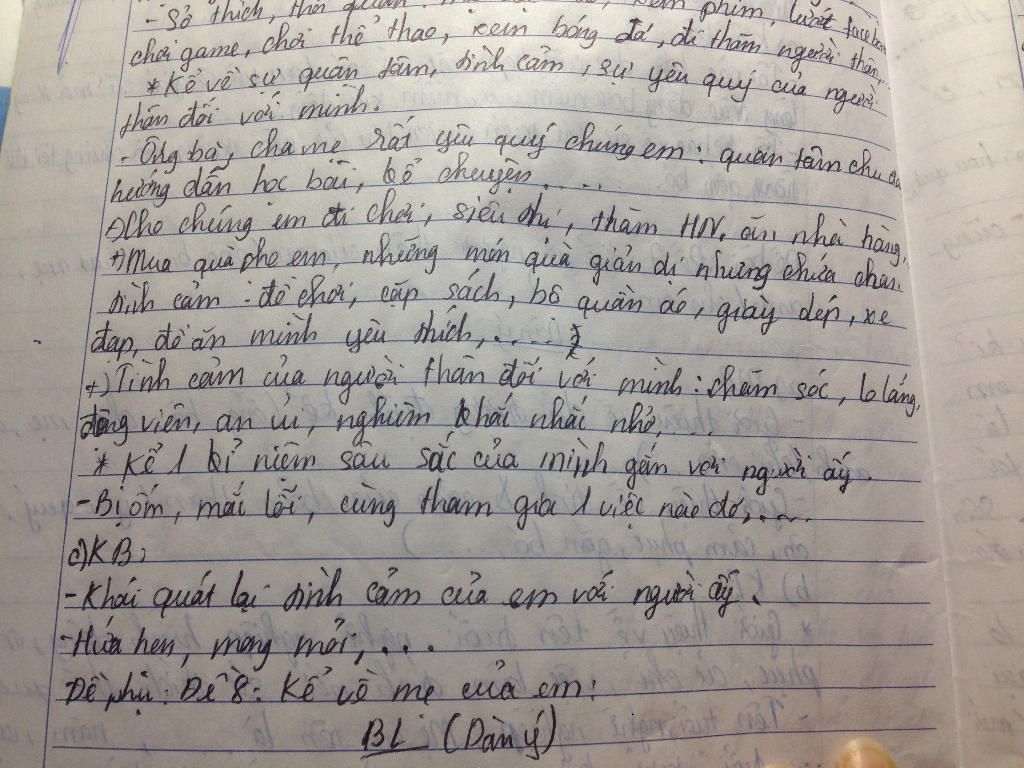 - Sở thích, thói quen: xem phim, lướt facebook
chơi game, chơi thể thao, xem bóng đá, đi thăm người thân...
* Kể về sự quan tâm, tình cảm, sự yêu quý của người
thân đối với mình.
- Ông bà, cha mẹ rất yêu quý chúng em: quan tâm chu đáo
hướng dẫn học bài, kể chuyện.....
+) Cho chúng em đi chơi, siêu thị, thăm HN, ăn nhà hàng,
+) Mua quà cho em, những món quà giản dị nhưng chứa chan
tình cảm: đồ chơi, cặp sách, bộ quần áo, giày dép, xe
đạp, đồ ăn mình yêu thích,.....
+) Tình cảm của người thân đối với mình: chăm sóc, lo lắng,
động viên, an ủi, nghiêm khắc nhắc nhở,...
* Kể 1 kỉ niệm sâu sắc của mình gắn với người ấy.
- Bị ốm, mắc lỗi, cùng tham gia 1 việc nào đó,....
c) KB:
- Khái quát lại tình cảm của em với người ấy.
- Hứa hẹn, mong mỏi,...
Đề phụ: Đề 8: Kể về mẹ của em!
BL (Dàn ý)